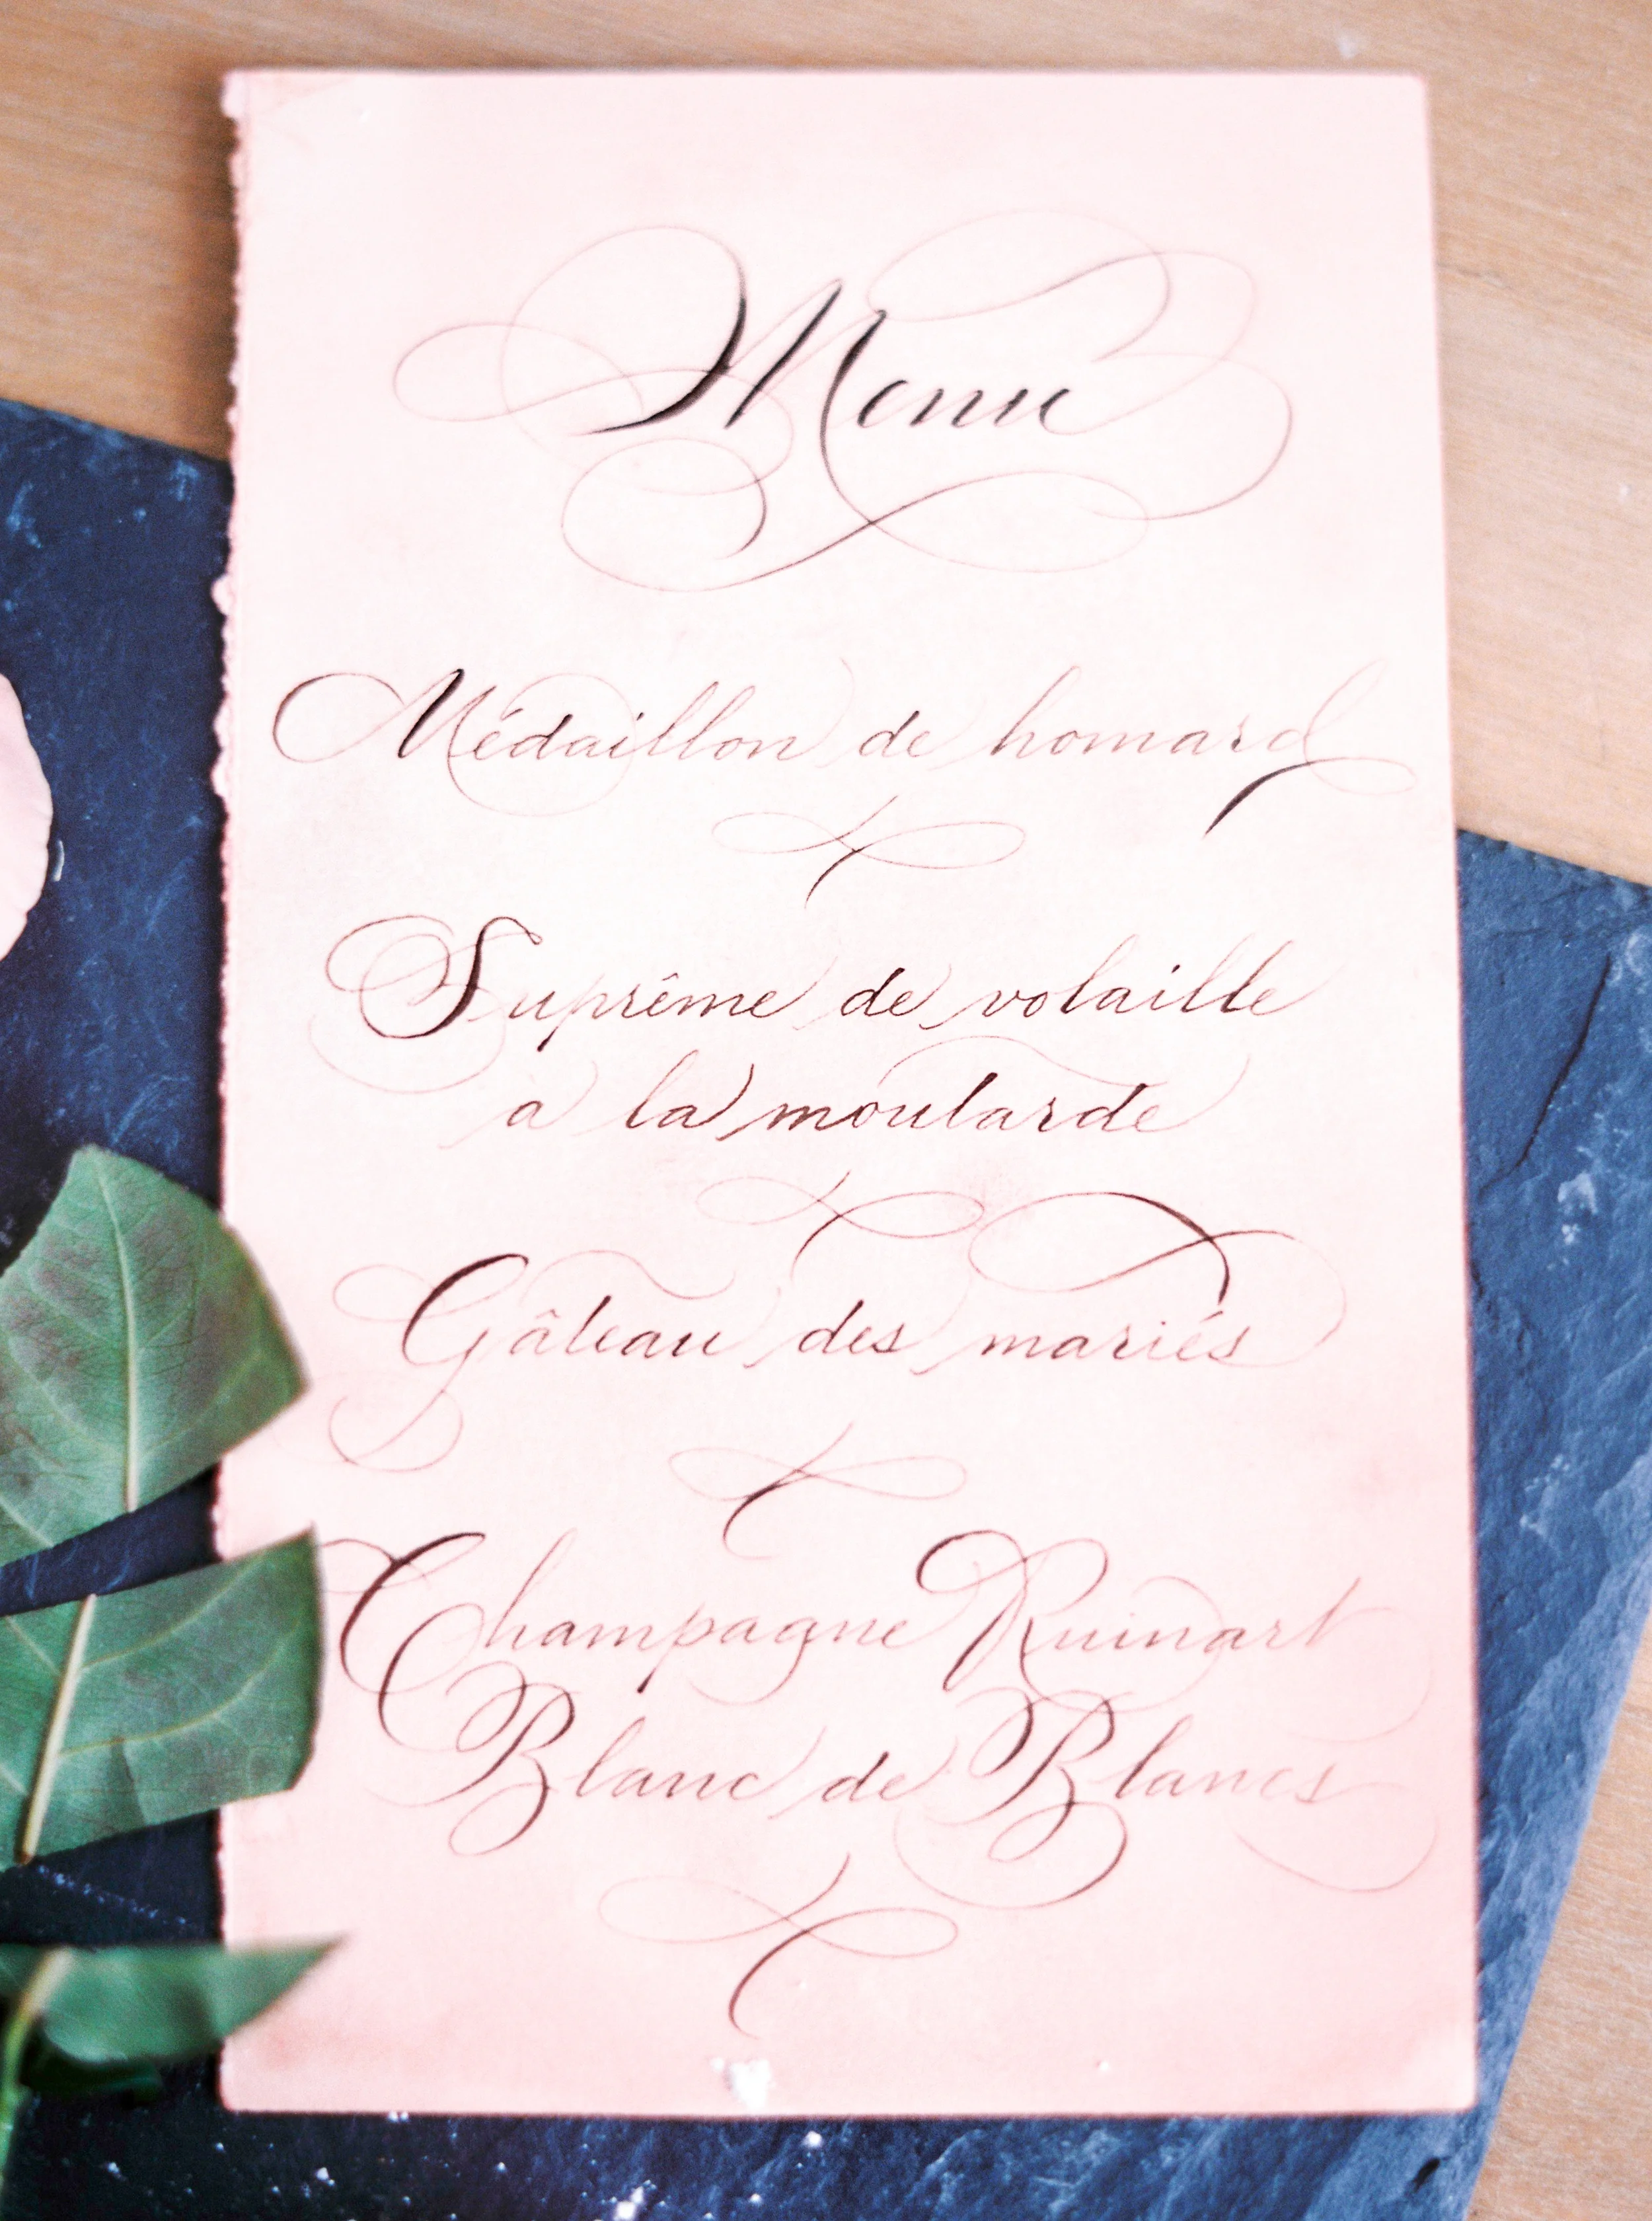 Menu
Médaillon de homard
Suprême de volaille
a la moutarde
Gâteau des mariés
Champagne Ruinart
Blanc de Blancs